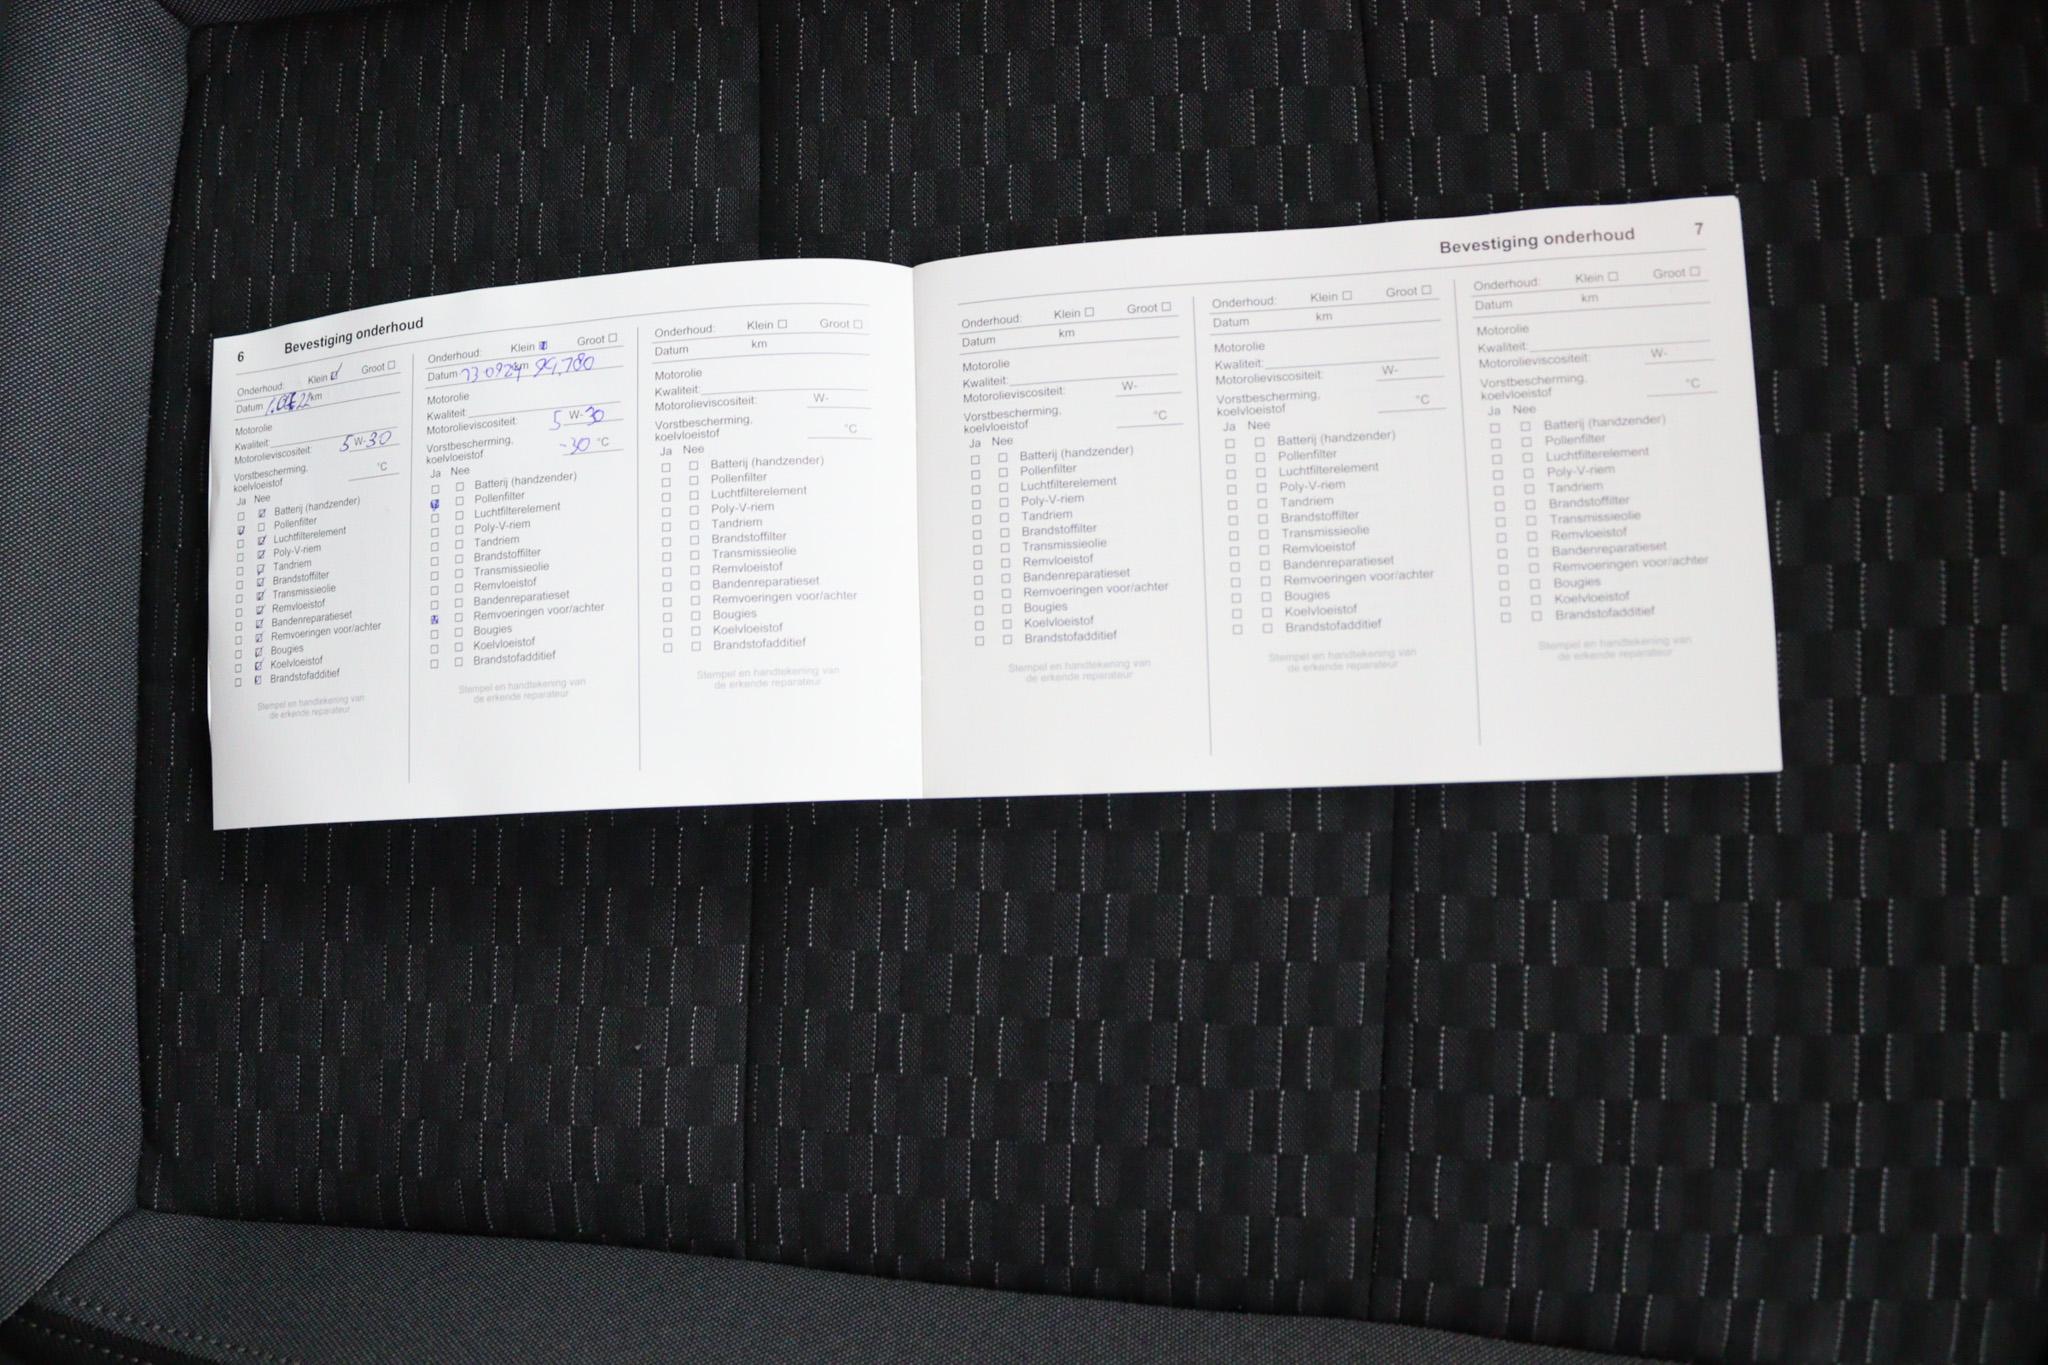 6 Bevestiging onderhoud
Onderhoud: Klein ☑ Groot ☐
Datum km
Motorolie
Kwaliteit:
Motorolieviscositeit: 5 W-30
Vorstbescherming,
koelvloeistof °C
Ja Nee
☐ ☑ Batterij (handzender)
☑ ☐ Pollenfilter
☐ ☑ Luchtfilterelement
☐ ☑ Poly-V-riem
☐ ☑ Tandriem
☐ ☑ Brandstoffilter
☐ ☑ Transmissieolie
☐ ☑ Remvloeistof
☐ ☑ Bandenreparatieset
☐ ☑ Remvoeringen voor/achter
☐ ☑ Bougies
☐ ☑ Koelvloeistof
☐ ☑ Brandstofadditief
Stempel en handtekening van
de erkende reparateur
Onderhoud: Klein ☑ Groot ☐
Datum km 99,780
Motorolie
Kwaliteit:
Motorolieviscositeit: 5 W-30
Vorstbescherming,
koelvloeistof -30 °C
Ja Nee
☐ ☐ Batterij (handzender)
☑ ☐ Pollenfilter
☐ ☐ Luchtfilterelement
☐ ☐ Poly-V-riem
☐ ☐ Tandriem
☐ ☐ Brandstoffilter
☐ ☐ Transmissieolie
☐ ☐ Remvloeistof
☐ ☐ Bandenreparatieset
☑ ☐ Remvoeringen voor/achter
☐ ☐ Bougies
☐ ☐ Koelvloeistof
☐ ☐ Brandstofadditief
Stempel en handtekening van
de erkende reparateur
Onderhoud: Klein ☐ Groot ☐
Datum km
Motorolie
Kwaliteit:
Motorolieviscositeit: W-
Vorstbescherming,
koelvloeistof °C
Ja Nee
☐ ☐ Batterij (handzender)
☐ ☐ Pollenfilter
☐ ☐ Luchtfilterelement
☐ ☐ Poly-V-riem
☐ ☐ Tandriem
☐ ☐ Brandstoffilter
☐ ☐ Transmissieolie
☐ ☐ Remvloeistof
☐ ☐ Bandenreparatieset
☐ ☐ Remvoeringen voor/achter
☐ ☐ Bougies
☐ ☐ Koelvloeistof
☐ ☐ Brandstofadditief
Stempel en handtekening van
de erkende reparateur
Bevestiging onderhoud 7
Onderhoud: Klein ☐ Groot ☐
Datum km
Motorolie
Kwaliteit:
Motorolieviscositeit: W-
Vorstbescherming,
koelvloeistof °C
Ja Nee
☐ ☐ Batterij (handzender)
☐ ☐ Pollenfilter
☐ ☐ Luchtfilterelement
☐ ☐ Poly-V-riem
☐ ☐ Tandriem
☐ ☐ Brandstoffilter
☐ ☐ Transmissieolie
☐ ☐ Remvloeistof
☐ ☐ Bandenreparatieset
☐ ☐ Remvoeringen voor/achter
☐ ☐ Bougies
☐ ☐ Koelvloeistof
☐ ☐ Brandstofadditief
Stempel en handtekening van
de erkende reparateur
Onderhoud: Klein ☐ Groot ☐
Datum km
Motorolie
Kwaliteit:
Motorolieviscositeit: W-
Vorstbescherming,
koelvloeistof °C
Ja Nee
☐ ☐ Batterij (handzender)
☐ ☐ Pollenfilter
☐ ☐ Luchtfilterelement
☐ ☐ Poly-V-riem
☐ ☐ Tandriem
☐ ☐ Brandstoffilter
☐ ☐ Transmissieolie
☐ ☐ Remvloeistof
☐ ☐ Bandenreparatieset
☐ ☐ Remvoeringen voor/achter
☐ ☐ Bougies
☐ ☐ Koelvloeistof
☐ ☐ Brandstofadditief
Stempel en handtekening van
de erkende reparateur
Onderhoud: Klein ☐ Groot ☐
Datum km
Motorolie
Kwaliteit:
Motorolieviscositeit: W-
Vorstbescherming,
koelvloeistof °C
Ja Nee
☐ ☐ Batterij (handzender)
☐ ☐ Pollenfilter
☐ ☐ Luchtfilterelement
☐ ☐ Poly-V-riem
☐ ☐ Tandriem
☐ ☐ Brandstoffilter
☐ ☐ Transmissieolie
☐ ☐ Remvloeistof
☐ ☐ Bandenreparatieset
☐ ☐ Remvoeringen voor/achter
☐ ☐ Bougies
☐ ☐ Koelvloeistof
☐ ☐ Brandstofadditief
Stempel en handtekening van
de erkende reparateur